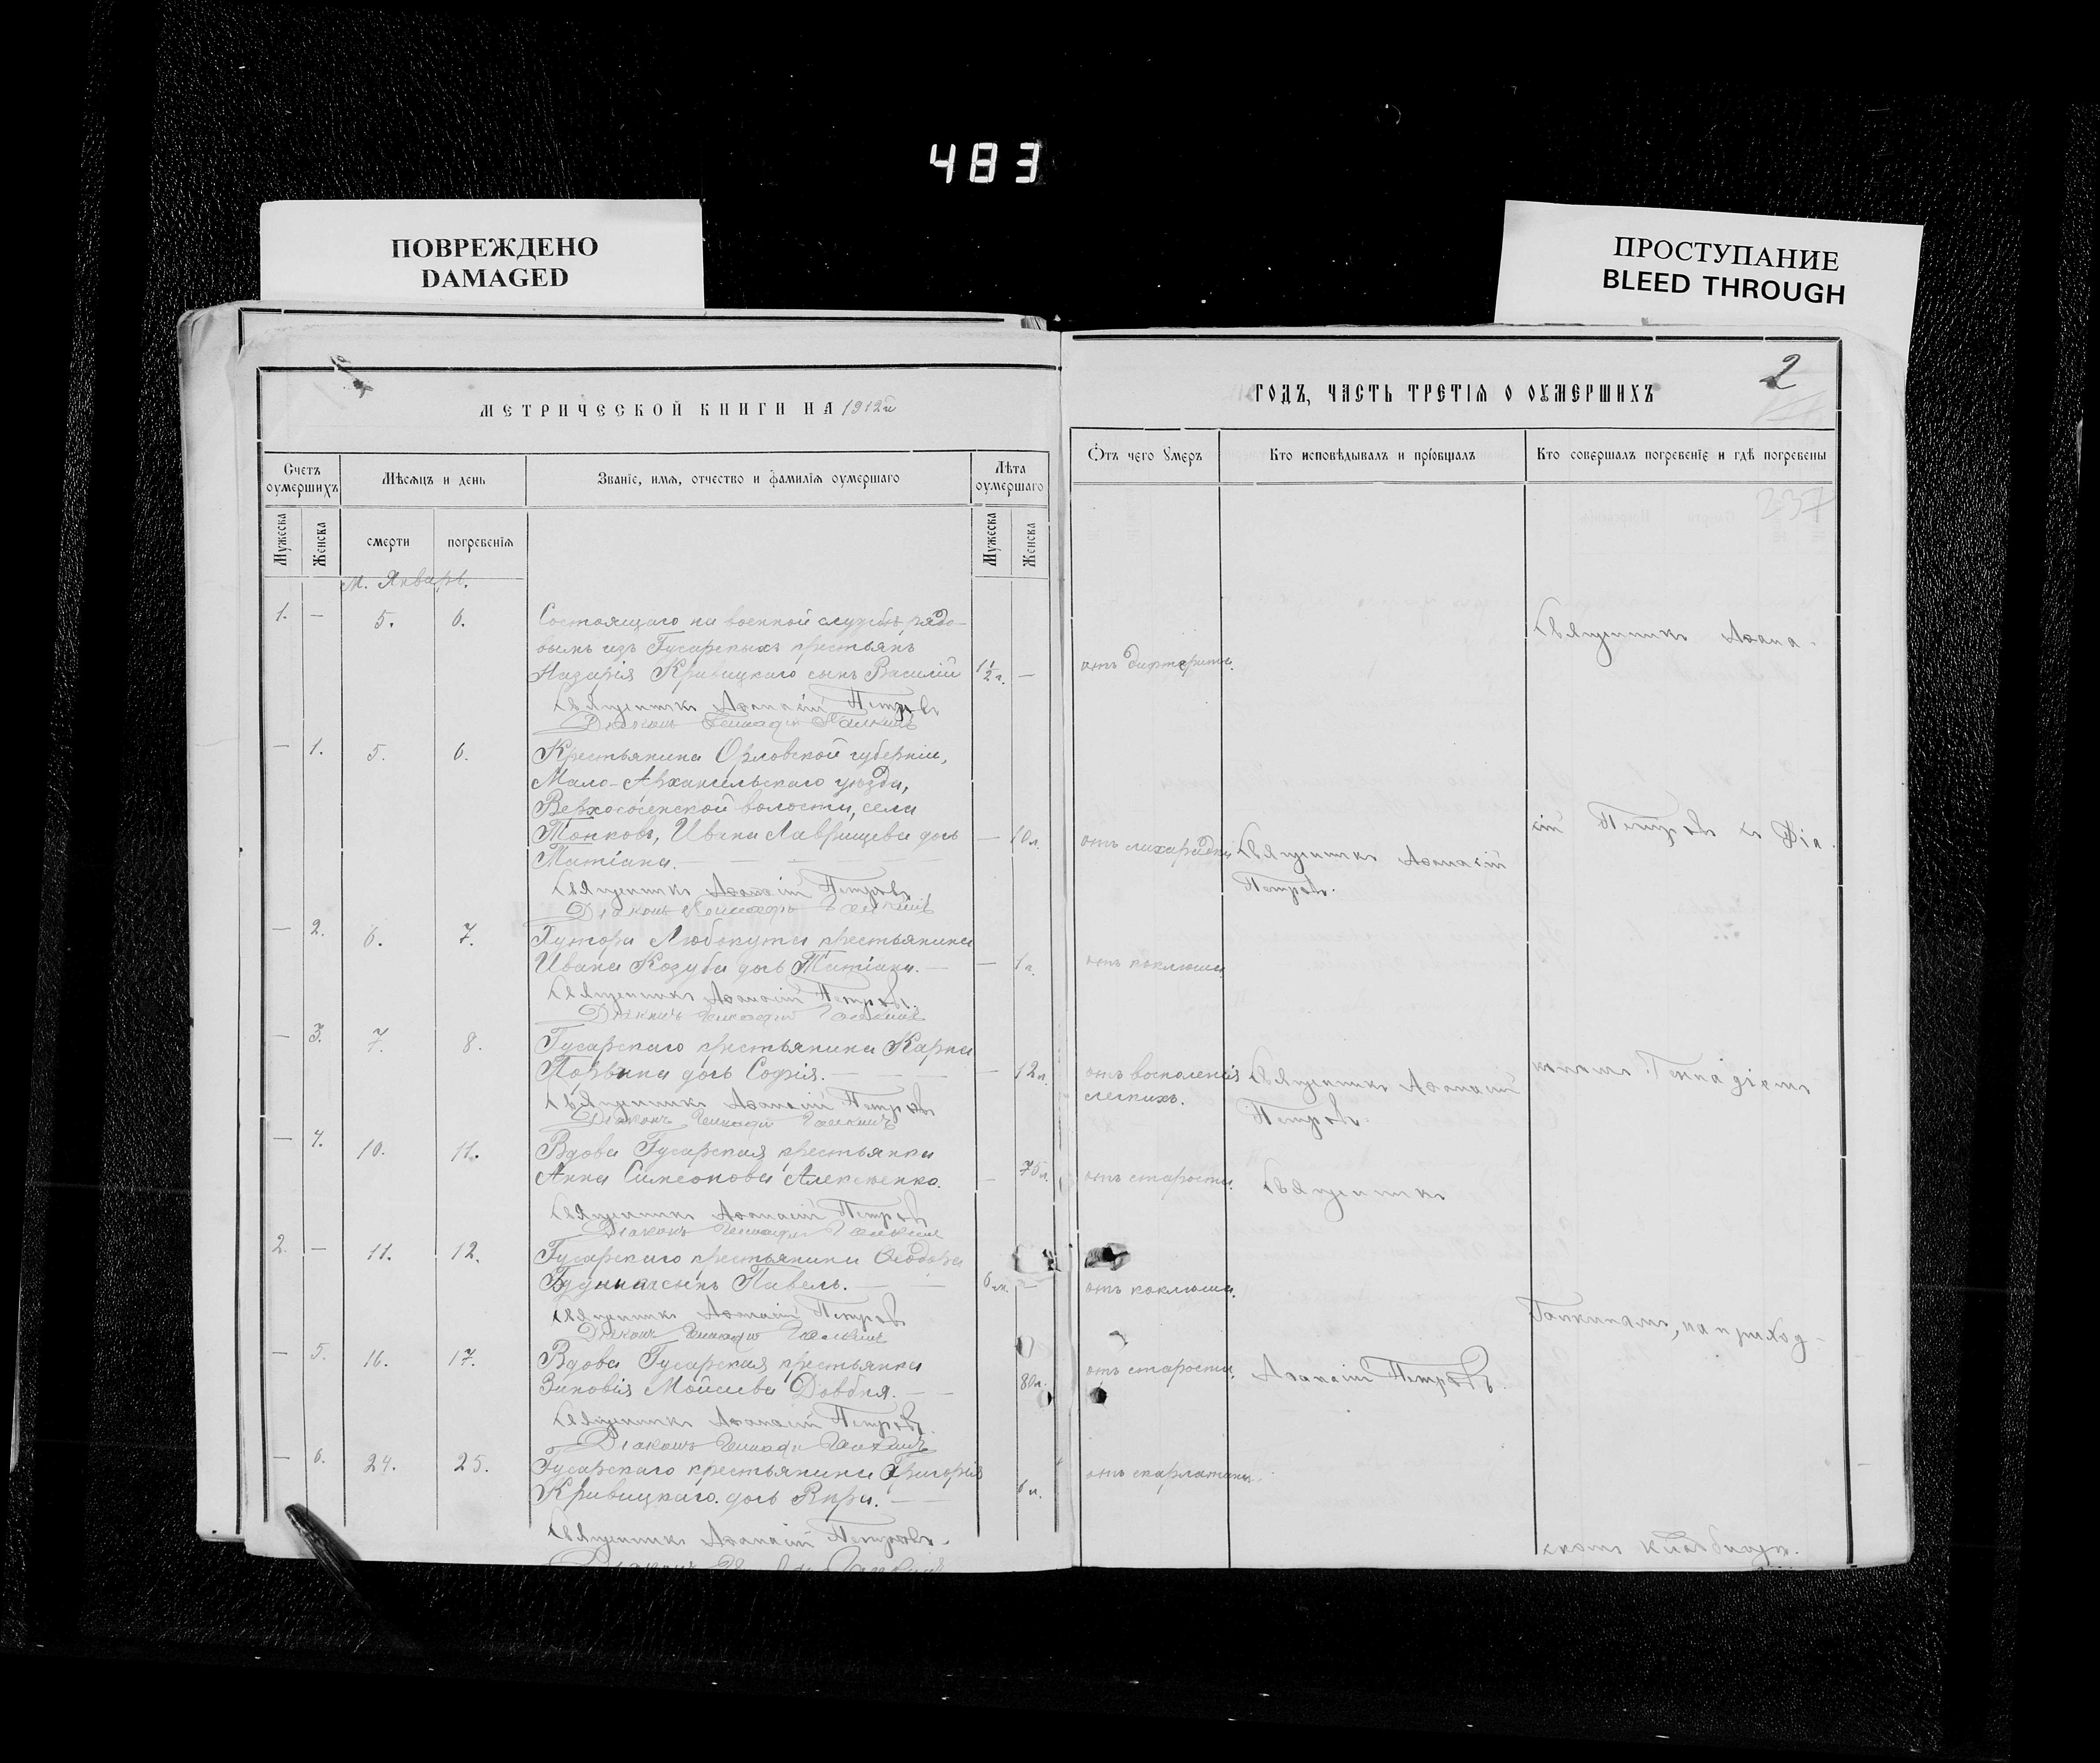 483
ПОВРЕЖДЕНО
DAMAGED
ПРОСТУПАНИЕ
BLEED THROUGH
МЕТРИЧЕСКОЙ КНИГИ НА 1912й
ГОДЪ, ЧАСТЬ ТРЕТІѦ О ОУМЕРШИХЪ
2
Счетъ оумершихъ
Мѣсѧцъ и день
Званіе, имѧ, отчество и фамиліѧ оумершаго
Лѣта оумершаго
Ѿтъ чего Умеръ
Кто исповѣдывалъ и пріѡбщалъ
Кто совершалъ погребеніе и гдѣ погребены
Мужеска
Женска
смерти
погребеніѧ
Мужеска
Женска
237
М. Январь.
1. — 5. 6. Состоящаго на военной службѣ рядо-
вымъ изъ Гусарскихъ крестьянъ
Назарія Кривицкаго сынъ Василій 1½ г. — отъ дифтерита.
Священникъ Аѳанасій Петровъ
Діаконъ Геннадій Галкинъ
— 1. 5. 6. Крестьянина Орловской губерніи,
Мало-Архангельскаго уѣзда,
Верхососенской волости, села
Топковъ, Ивана Лаврищева дочь — 10 л. отъ лихарадки Священникъ Аѳанасій
Татіана. Петровъ.
Священникъ Аѳанасій Петровъ
Діаконъ Геннадій Галкинъ
— 2. 6. 7. Хутора Любокута крестьянина
Ивана Козуба дочь Татіана. — 1 г. отъ коклюша
Священникъ Аѳанасій Петровъ.
Діаконъ Геннадій Галкинъ
— 3. 7. 8. Гусарскаго крестьянина Карпа
дочь Софія. — 12 л. отъ воспаленія Священникъ Аѳанасій
легкихъ. Петровъ.
Священникъ Аѳанасій Петровъ
Діаконъ Геннадій Галкинъ
— 4. 10. 11. Вдова Гусарская крестьянка
Анна Симеонова Алексѣенко. — 75 л. отъ старости. Священникъ
Священникъ Аѳанасій Петровъ
Діаконъ Геннадій Галкинъ
2. — 11. 12. Гусарскаго крестьянина Ѳеодора
сынъ Павелъ. 6 м. — отъ коклюша.
Священникъ Аѳанасій Петровъ
Діаконъ Геннадій Галкинъ
— 5. 16. 17. Вдова Гусарская крестьянка
Зиновія Мойсеева Довбня. 80 л. отъ старости. Аѳанасій Петровъ.
Священникъ Аѳанасій Петровъ.
Діаконъ Геннадій Галкинъ
— 6. 24. 25. Гусарскаго крестьянина Григорія
Кривицкаго дочь 6 л. отъ скарлатины.
Священникъ Аѳанасій Петровъ.
Діаконъ Геннадій Галкинъ
Священникъ Аѳана-
сій Петровъ съ Діа-
кономъ Геннадіемъ
Галкинымъ, на приход-
скомъ кладбищѣ.